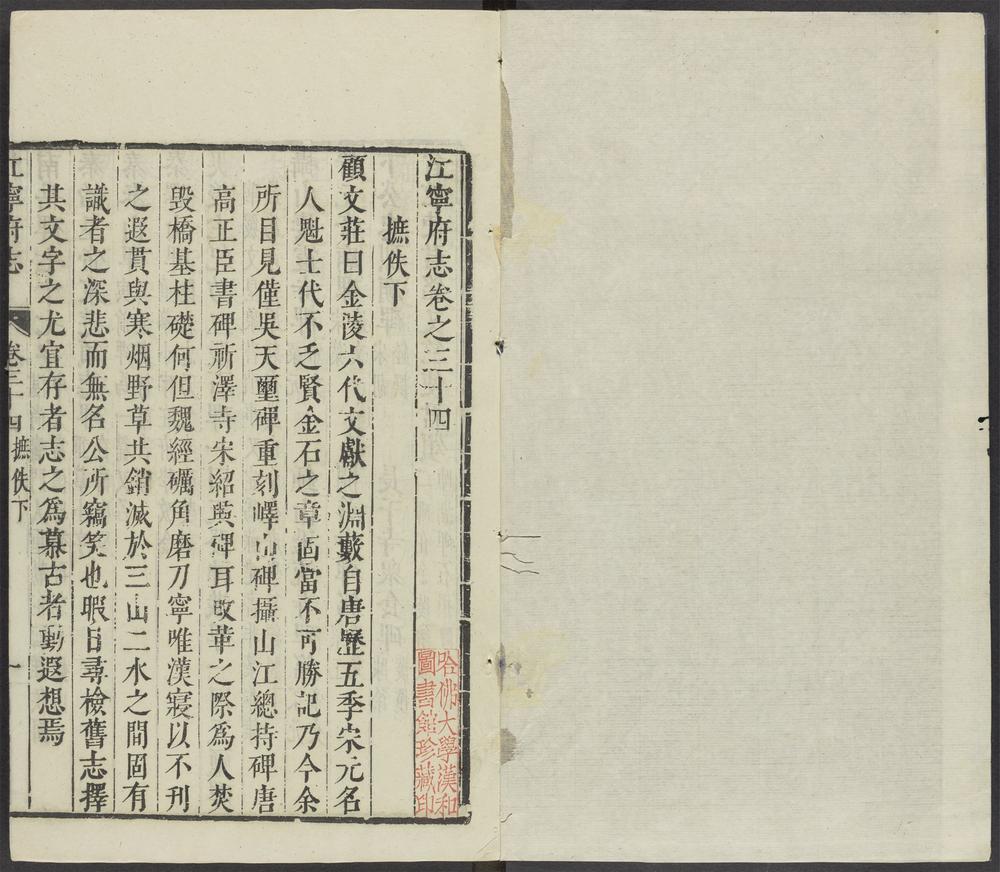 江寧府志卷之三十四
摭佚下
顧文莊曰金陵六代文獻之淵藪自唐歷五季宋元名
人魁士代不乏賢金石之章固當不可勝記乃今余
所目見僅吳天璽碑重刻嶧山碑攝山江總持碑唐
高正臣書碑祈澤寺宋紹興碑耳改革之際爲人焚
毀橋基柱礎何但魏經礪角磨刀寧唯漢寢以不刋
之遐貫與寒烟野草共銷滅於三山二水之間固有
識者之深悲而無名公所竊笑也暇日尋檢舊志擇
其文字之尤宜存者志之爲慕古者動遐想焉
江寧府志
卷三十四 摭佚下
一
哈佛大學漢和
圖書館珍藏印